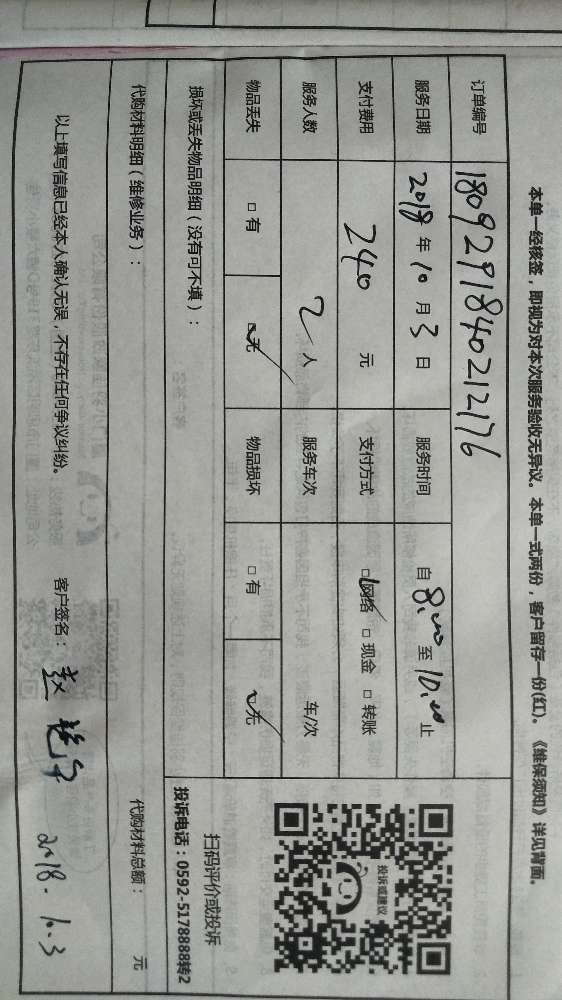 本单一经核签，即视为对本次服务验收无异议。本单一式两份，客户留存一份(红)。《维保须知》详见背面。
订单编号 1809291840212176
服务日期 2018 年 10 月 3 日 服务时间 自 8:00 至 10:00 止
支付费用 240 元 支付方式 □网络 □现金 □转账
服务人数 2 人 服务车次 车/次
物品丢失 □有 □无 物品损坏 □有 □无
损坏或丢失物品明细（没有可不填）：
投诉或建议
扫码评价或投诉
投诉电话：0592-5178888转2
代购材料明细（维修业务）： 代购材料总额： 元
以上填写信息已经本人确认无误，不存在任何争议纠纷。 客户签名： 赵 2018.10.3